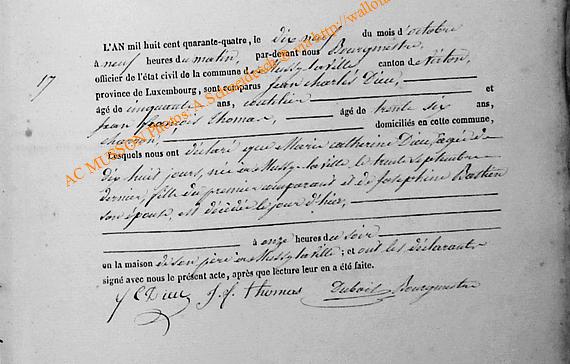 17
L'AN mil huit cent quarante-quatre, le dix neuf du mois d'octobre
à neuf heures du matin, par-devant nous Bourgmestre,
officier de l'état civil de la commune de Mussy la ville canton de Virton,
province de Luxembourg, sont comparus Jean Charles Dieu,
âgé de cinquante ans, coutelier et
Jean François Thomas, âgé de trente six ans,
charron, domiciliés en cette commune,
Lesquels nous ont déclaré que Marie Catherine Dieu, âgée de
dix huit jours, née à Mussy la ville le trente Septembre
dernier, fille du premier comparant et de Josephine Bastien
son épouse, est décédée le jour d'hier,
à onze heures du soir
en la maison de son père à Mussy la ville; et ont les déclarants
signé avec nous le présent acte, après que lecture leur en a été faite.
J C Dieu J. f. thomas Dubois Bourgmestre
AC MUSSON Photos: A. Schneidesch @ via http://wallo